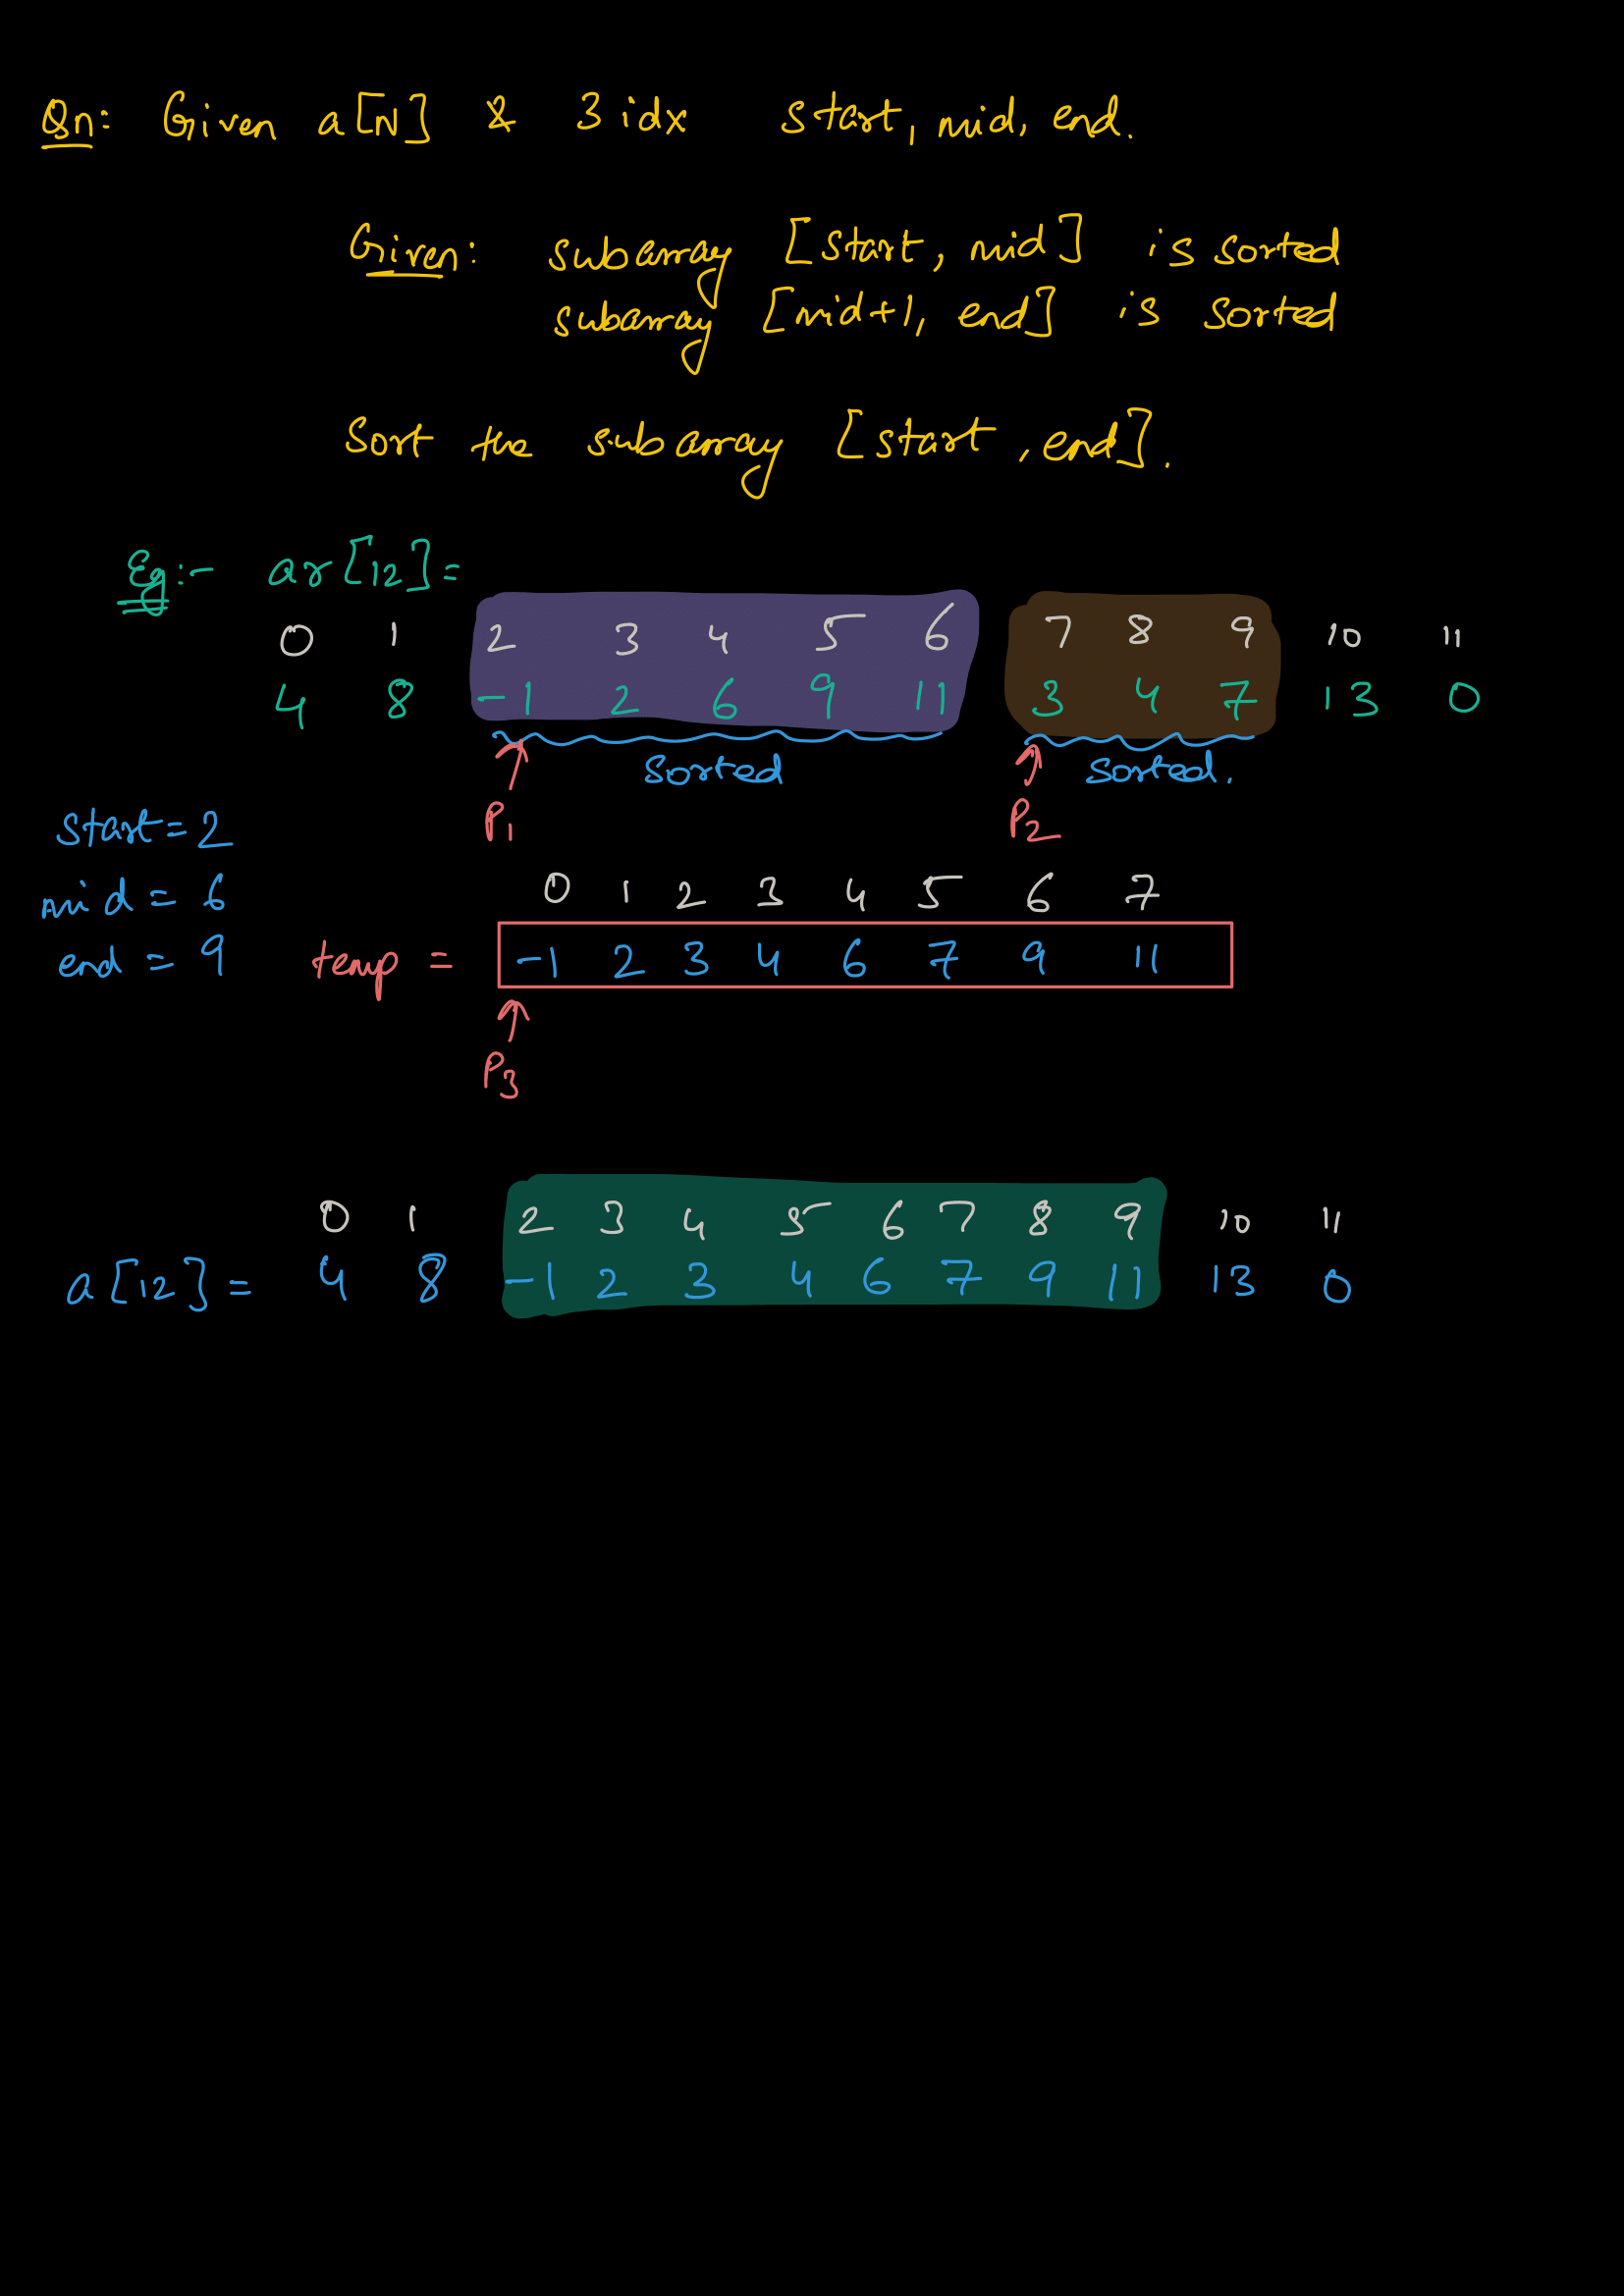 Qn: Given a[N] & 3 idx start, mid, end.
Given: subarray [start, mid] is sorted
subarray [mid+1, end] is sorted
Sort the subarray [start, end].
Eg:- ar[12]=
0 1 2 3 4 5 6 7 8 9 10 11
4 8 -1 2 6 9 11 3 4 7 13 0
sorted sorted.
P1 P2
start=2
mid = 6
end = 9
0 1 2 3 4 5 6 7
temp = -1 2 3 4 6 7 9 11
P3
0 1 2 3 4 5 6 7 8 9 10 11
a[12]= 4 8 -1 2 3 4 6 7 9 11 13 0